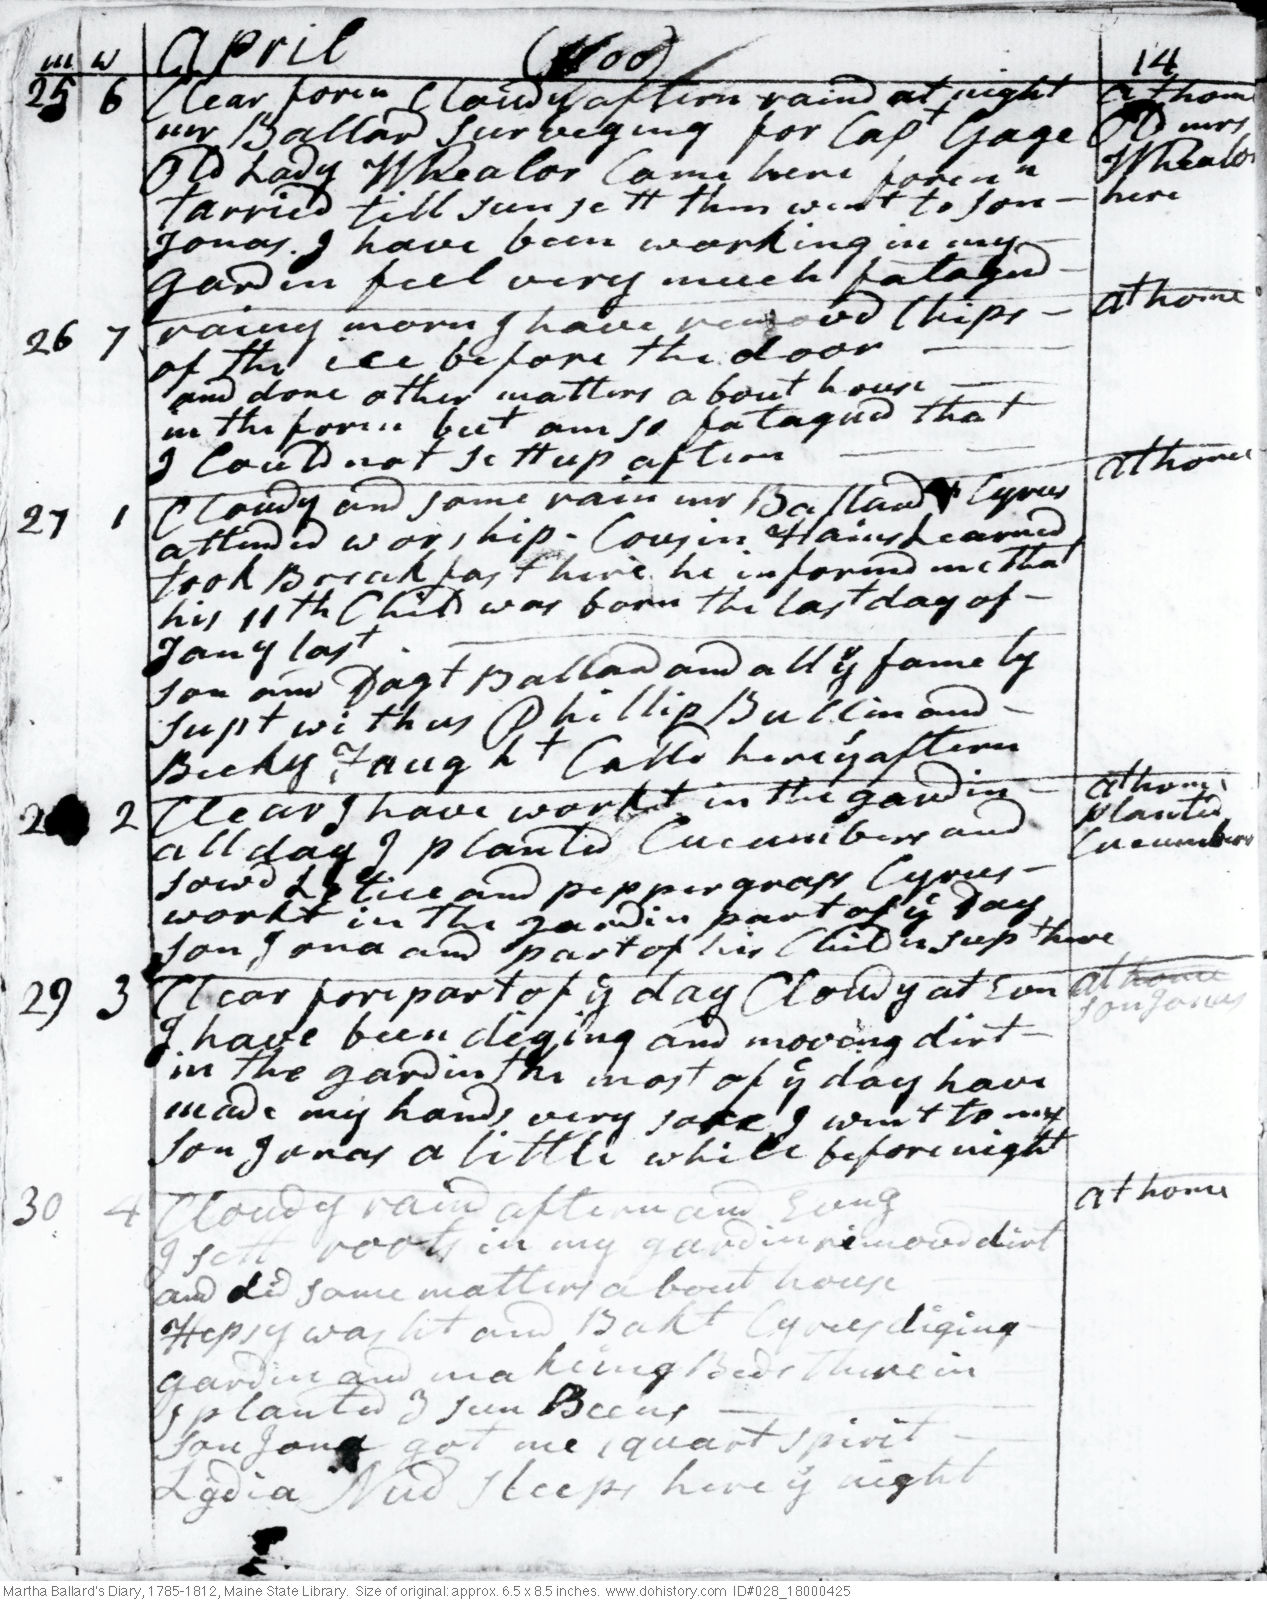 m w April (1800) 14
25 6 Clear foren Cloudy aftern raind at night at home
mr Ballard surveying for Capt Gage Old mrs
Old Lady Whealor Came here foren Whealor
tarried till sun sett then went to son here
Jonas. I have been working in my
gardin feel very much fatagud
26 7 rainy morn I have removd Chips at home
of the ice before the door
and done other matters about house
in the foren but am so fatagud that
I Could not sett up aftern
27 1 Cloudy and some rain mr Ballard & Cyrus at home
attended worship. Cousin Hains Learned
took Breakfast here he informd me that
his 11th Child was born the last day of
Jany last
son and Dagt Ballard and all ÿ famely
supt with us Phillip Bullin and
Becky Faught Calld here ÿ aftern
2 2 Clear I have workt in the gardin at home
all day I planted Cucumbers and planted
sowd Letice and peppergrass Cyrus Cucumbers
workt in the gardin part of ÿ Day
son Jona and part of his Children supt here
29 3 Clear forepart of ÿ day Cloudy at Evn at home
I have been diging and moveing dirt son Jonas
in the gardin the most of ÿ day have
made my hands very sore I went to my
son Jonas a little while before night
30 4 Cloudy raind aftern and Evng at home
I sett roots in my gardin removd dirt
and did some matters about house
Hepsy washt and Bakt Cyrus diging
gardin and makeing Beds therein
I planted 3 sun Beens
son Jona got me 1 quart spirit
Lydia Nud sleeps here ÿ night
Martha Ballard's Diary, 1785-1812, Maine State Library. Size of original: approx. 6.5 x 8.5 inches. www.dohistory.com ID#028_18000425